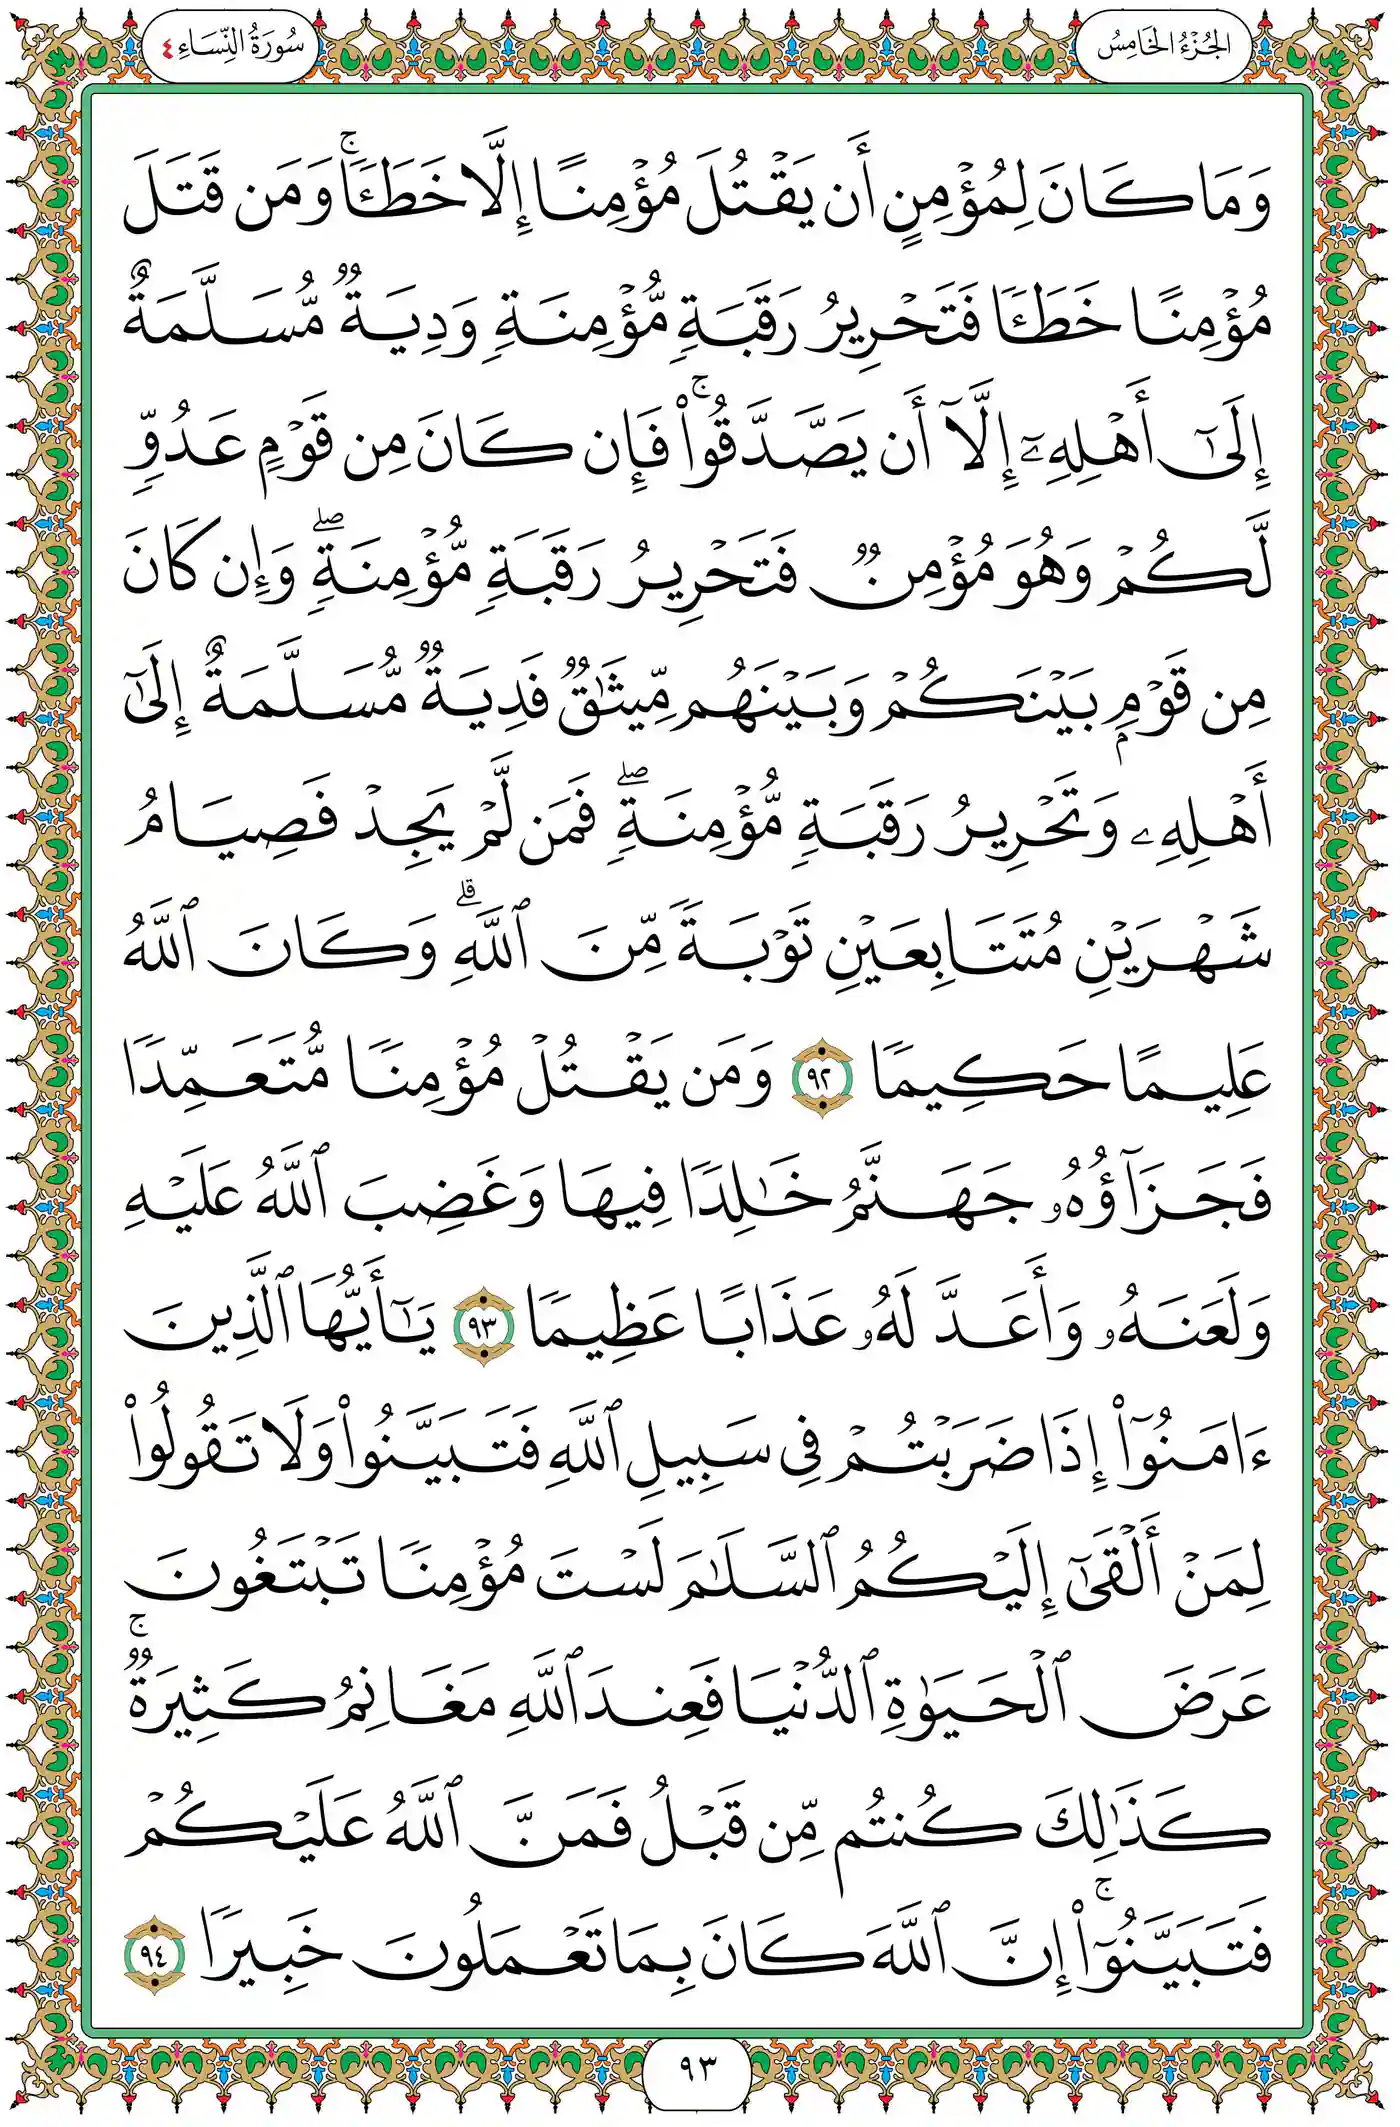 الجُزْءُ الخَامِسُ
سُورَةُ النِّسَاءِ ٤
وَمَا كَانَ لِمُؤْمِنٍ أَن يَقْتُلَ مُؤْمِنًا إِلَّا خَطَـًٔاۚ وَمَن قَتَلَ
مُؤْمِنًا خَطَـًٔا فَتَحْرِيرُ رَقَبَةٍ مُّؤْمِنَةٍ وَدِيَةٌ مُّسَلَّمَةٌ
إِلَىٰٓ أَهْلِهِۦٓ إِلَّآ أَن يَصَّدَّقُوا۟ۚ فَإِن كَانَ مِن قَوْمٍ عَدُوٍّ
لَّكُمْ وَهُوَ مُؤْمِنٌ فَتَحْرِيرُ رَقَبَةٍ مُّؤْمِنَةٍۖ وَإِن كَانَ
مِن قَوْمٍۭ بَيْنَكُمْ وَبَيْنَهُم مِّيثَـٰقٌ فَدِيَةٌ مُّسَلَّمَةٌ إِلَىٰٓ
أَهْلِهِۦ وَتَحْرِيرُ رَقَبَةٍ مُّؤْمِنَةٍۖ فَمَن لَّمْ يَجِدْ فَصِيَامُ
شَهْرَيْنِ مُتَتَابِعَيْنِ تَوْبَةً مِّنَ ٱللَّهِۗ وَكَانَ ٱللَّهُ
عَلِيمًا حَكِيمًا ٩٢ وَمَن يَقْتُلْ مُؤْمِنًا مُّتَعَمِّدًا
فَجَزَآؤُهُۥ جَهَنَّمُ خَـٰلِدًا فِيهَا وَغَضِبَ ٱللَّهُ عَلَيْهِ
وَلَعَنَهُۥ وَأَعَدَّ لَهُۥ عَذَابًا عَظِيمًا ٩٣ يَـٰٓأَيُّهَا ٱلَّذِينَ
ءَامَنُوٓا۟ إِذَا ضَرَبْتُمْ فِى سَبِيلِ ٱللَّهِ فَتَبَيَّنُوا۟ وَلَا تَقُولُوا۟
لِمَنْ أَلْقَىٰٓ إِلَيْكُمُ ٱلسَّلَـٰمَ لَسْتَ مُؤْمِنًا تَبْتَغُونَ
عَرَضَ ٱلْحَيَوٰةِ ٱلدُّنْيَا فَعِندَ ٱللَّهِ مَغَانِمُ كَثِيرَةٌۚ
كَذَٰلِكَ كُنتُم مِّن قَبْلُ فَمَنَّ ٱللَّهُ عَلَيْكُمْ
فَتَبَيَّنُوٓا۟ۚ إِنَّ ٱللَّهَ كَانَ بِمَا تَعْمَلُونَ خَبِيرًا ٩٤
٩٣